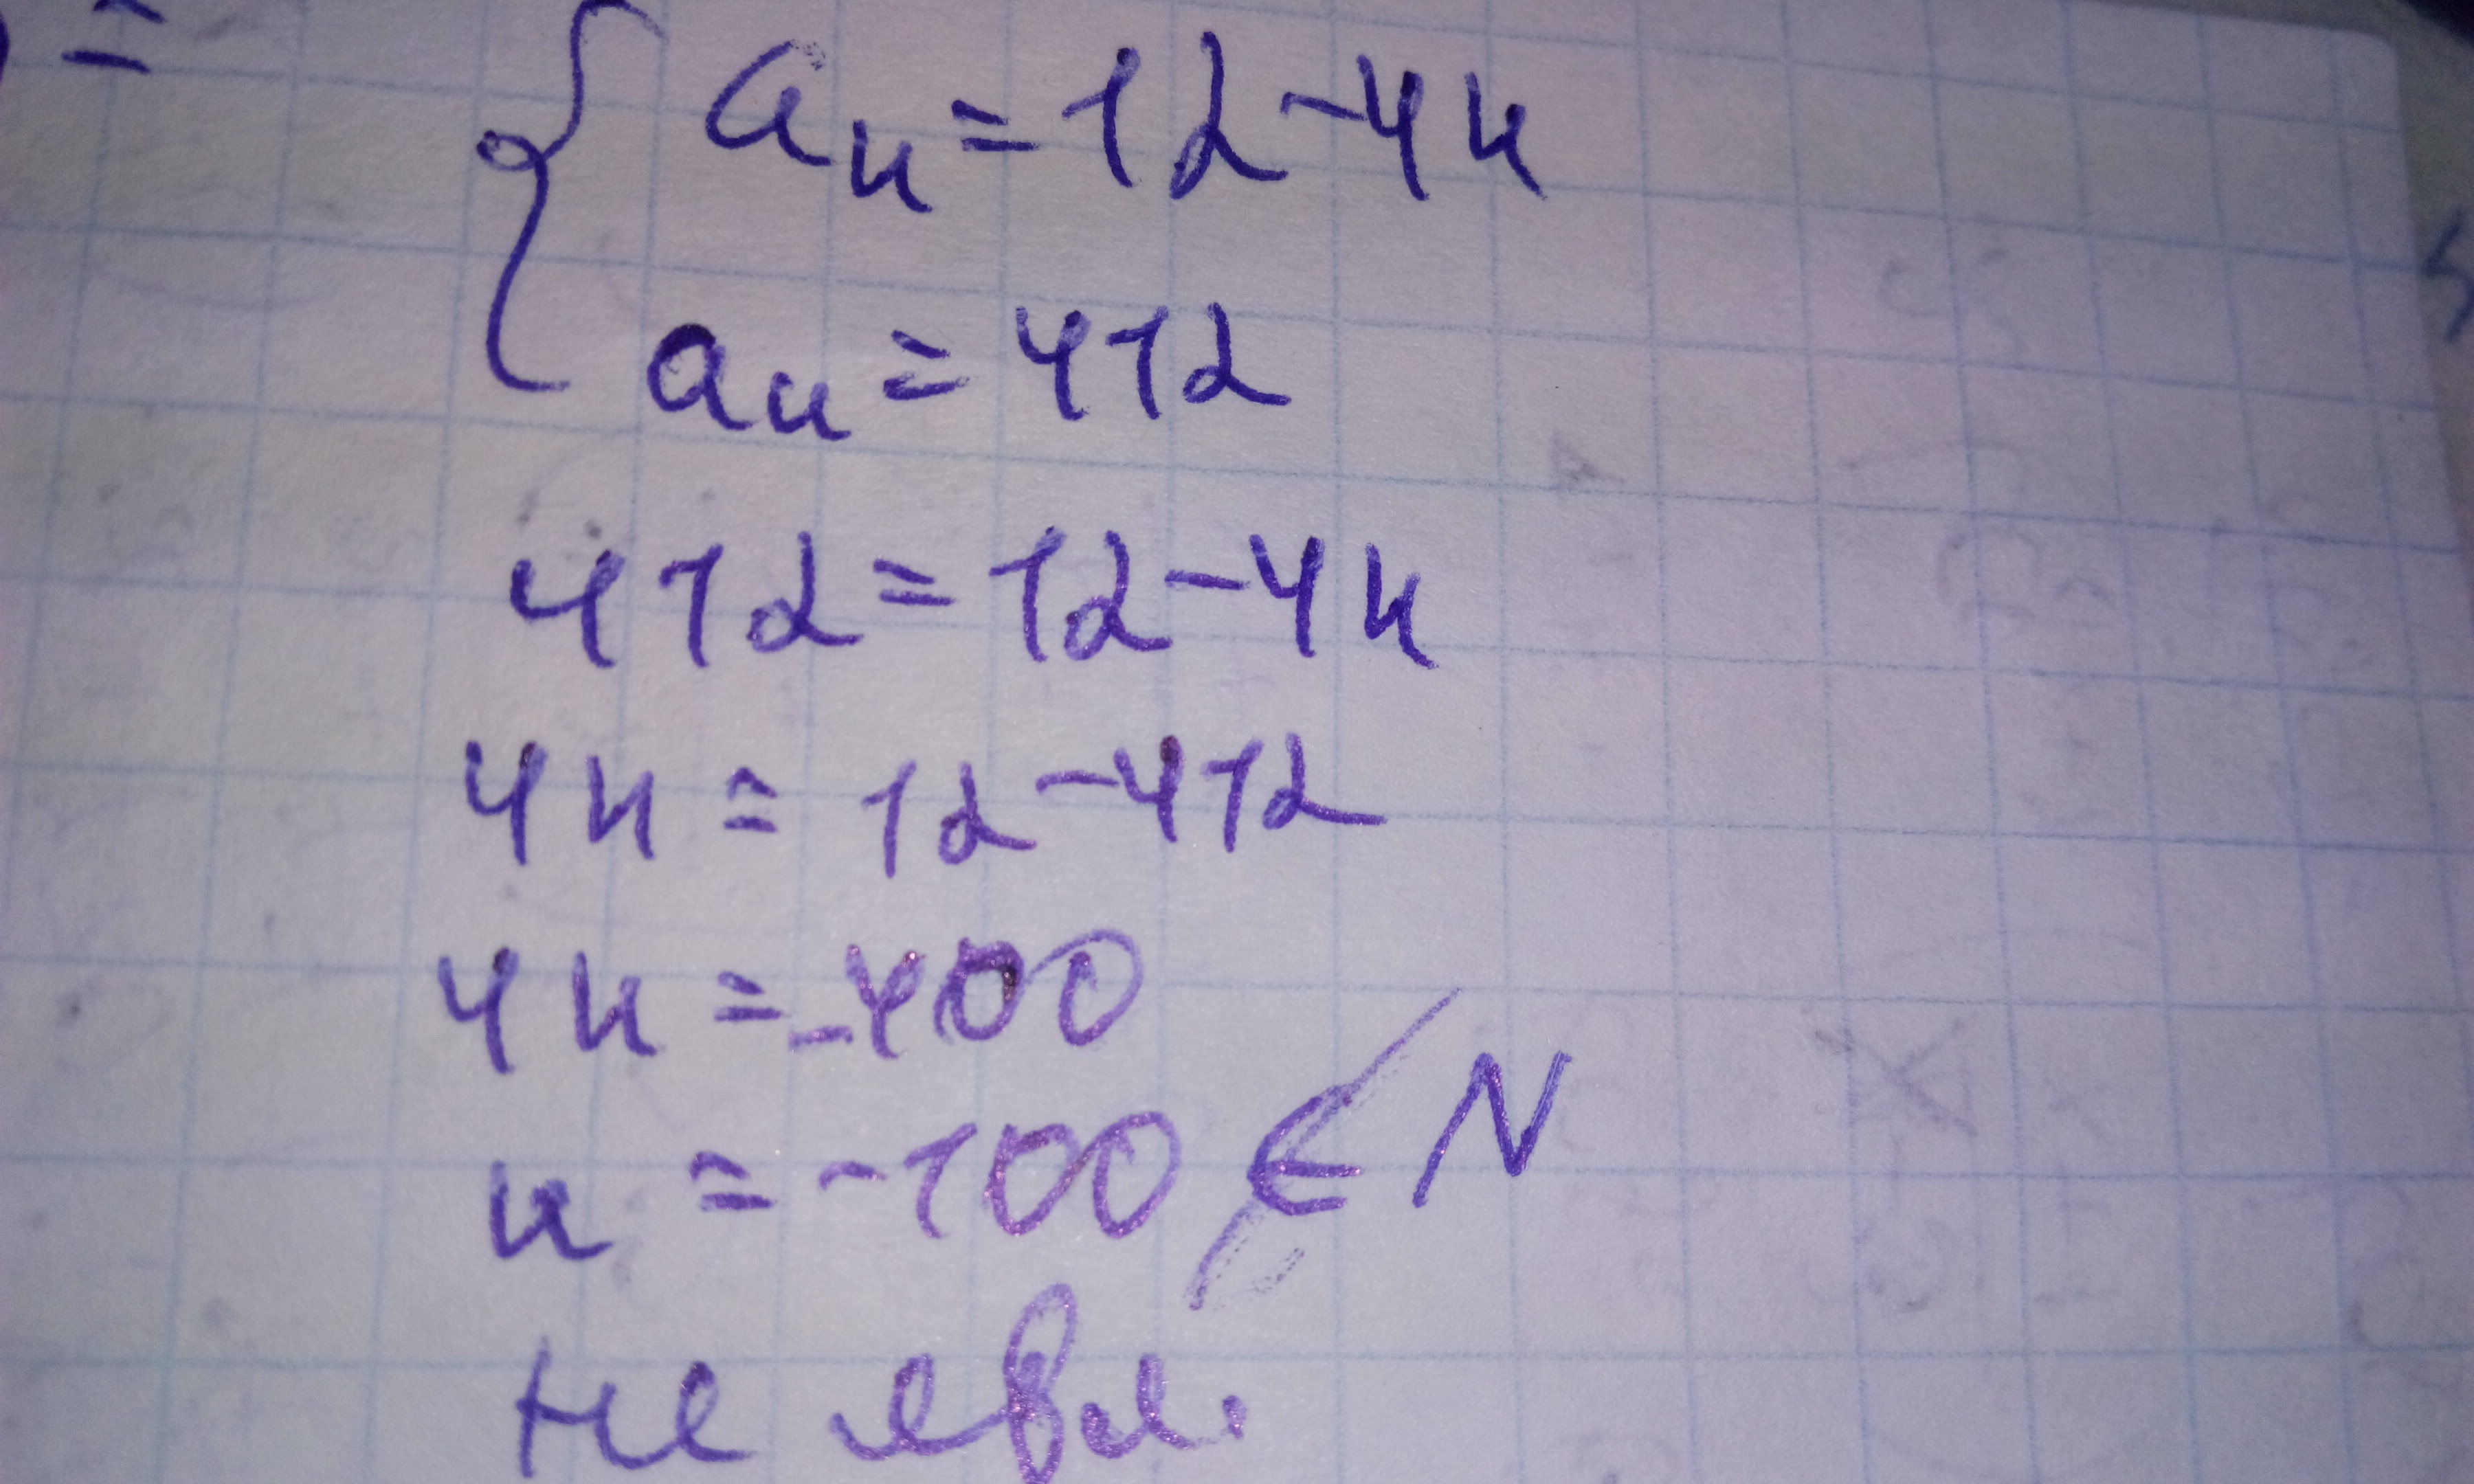 =
{ aₙ = 12 - 4n
aₙ = 412
412 = 12 - 4n
4n = 12 - 412
4n = -400
n = -100 ∉ N
не явл.